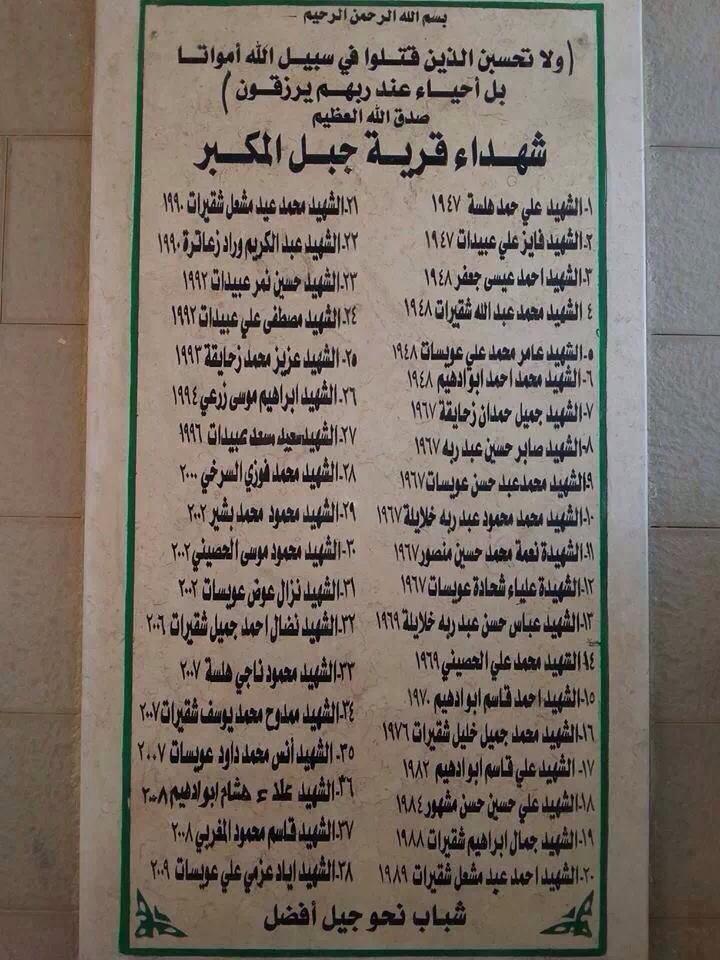 بسم الله الرحمن الرحيم
(ولا تحسبن الذين قتلوا في سبيل الله أمواتا
بل أحياء عند ربهم يرزقون)
صدق الله العظيم
شهداء قرية جبل المكبر
١-الشهيد علي حمد هلسة ١٩٤٧
٢-الشهيد فايز علي عبيدات ١٩٤٧
٣-الشهيد احمد عيسى جعفر ١٩٤٨
٤ الشهيد محمد عبد الله شقيرات ١٩٤٨
٥-الشهيد عامر محمد علي عويسات ١٩٤٨
٦-الشهيد محمد احمد ابو ادهيم ١٩٤٨
٧-الشهيد جميل حمدان زحايقة ١٩٦٧
٨-الشهيد صابر حسين عبد ربه ١٩٦٧
٩-الشهيد محمد عبد حسن عويسات ١٩٦٧
١٠-الشهيد محمد محمود عبد ربه خلايلة ١٩٦٧
١١-الشهيدة نعمة محمد حسين منصور ١٩٦٧
١٢-الشهيدة علياء شحادة عويسات ١٩٦٧
١٣-الشهيد عباس حسن عبد ربه خلايلة ١٩٦٩
١٤-الشهيد محمد علي الحصيني ١٩٦٩
١٥-الشهيد احمد قاسم ابو ادهيم ١٩٧٠
١٦-الشهيد محمد جميل خليل شقيرات ١٩٧٦
١٧-الشهيد علي قاسم ابو ادهيم ١٩٨٢
١٨-الشهيد علي حسين حسن مشهور ١٩٨٤
١٩-الشهيد جمال ابراهيم شقيرات ١٩٨٨
٢٠-الشهيد احمد عبد مشعل شقيرات ١٩٨٩
٢١-الشهيد محمد عيد مشعل شقيرات ١٩٩٠
٢٢-الشهيد عبد الكريم وراد زعاترة ١٩٩٠
٢٣-الشهيد حسين نمر عبيدات ١٩٩٢
٢٤-الشهيد مصطفى علي عبيدات ١٩٩٢
٢٥-الشهيد عزيز محمد زحايقة ١٩٩٣
٢٦-الشهيد ابراهيم موسى زرعي ١٩٩٤
٢٧-الشهيد سعيد مسعد عبيدات ١٩٩٦
٢٨-الشهيد محمد فوزي السرخي ٢٠٠٠
٢٩-الشهيد محمود محمد بشير ٢٠٠٢
٣٠-الشهيد محمود موسى الحصيني ٢٠٠٢
٣١-الشهيد نزال عوض عويسات ٢٠٠٢
٣٢-الشهيد نضال احمد جميل شقيرات ٢٠٠٦
٣٣-الشهيد محمود ناجي هلسة ٢٠٠٧
٣٤-الشهيد ممدوح محمد يوسف شقيرات ٢٠٠٧
٣٥-الشهيد أنس محمد داود عويسات ٢٠٠٧
٣٦-الشهيد علاء هشام ابو ادهيم ٢٠٠٨
٣٧-الشهيد قاسم محمود المغربي ٢٠٠٨
٣٨-الشهيد اياد عزمي علي عويسات ٢٠٠٩
شباب نحو جيل أفضل